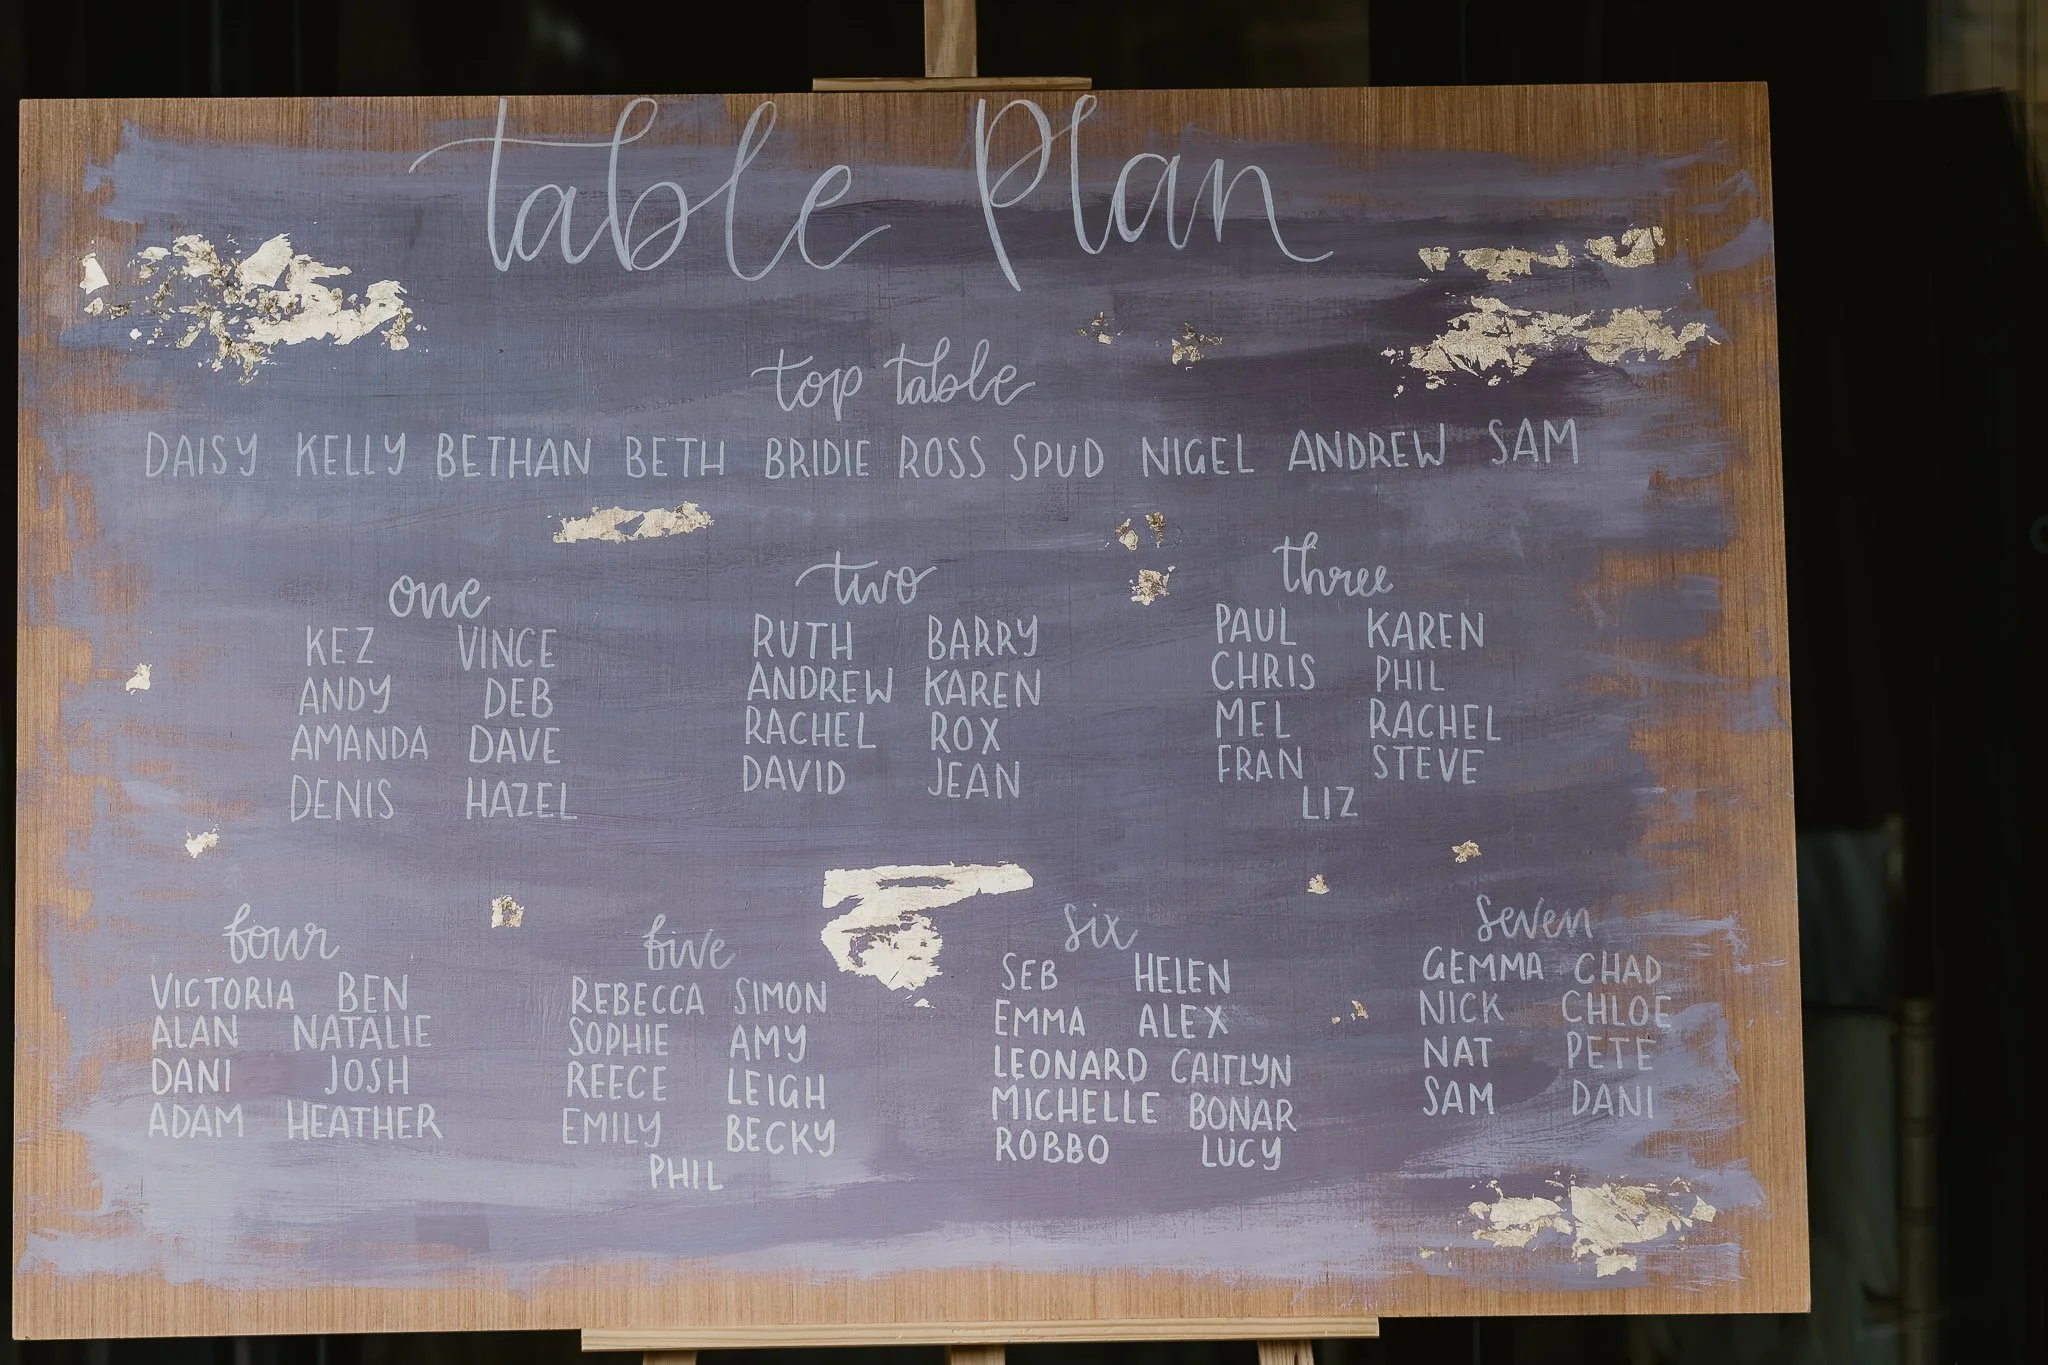 table Plan
top table
DAISY KELLY BETHAN BETH BRIDIE ROSS SPUD NIGEL ANDREW SAM
one
KEZ VINCE
ANDY DEB
AMANDA DAVE
DENIS HAZEL
two
RUTH BARRY
ANDREW KAREN
RACHEL ROX
DAVID JEAN
three
PAUL KAREN
CHRIS PHIL
MEL RACHEL
FRAN STEVE
LIZ
four
VICTORIA BEN
ALAN NATALIE
DANI JOSH
ADAM HEATHER
five
REBECCA SIMON
SOPHIE AMY
REECE LEIGH
EMILY BECKY
PHIL
six
SEB HELEN
EMMA ALEX
LEONARD CAITLYN
MICHELLE BONAR
ROBBO LUCY
seven
GEMMA CHAD
NICK CHLOE
NAT PETE
SAM DANI